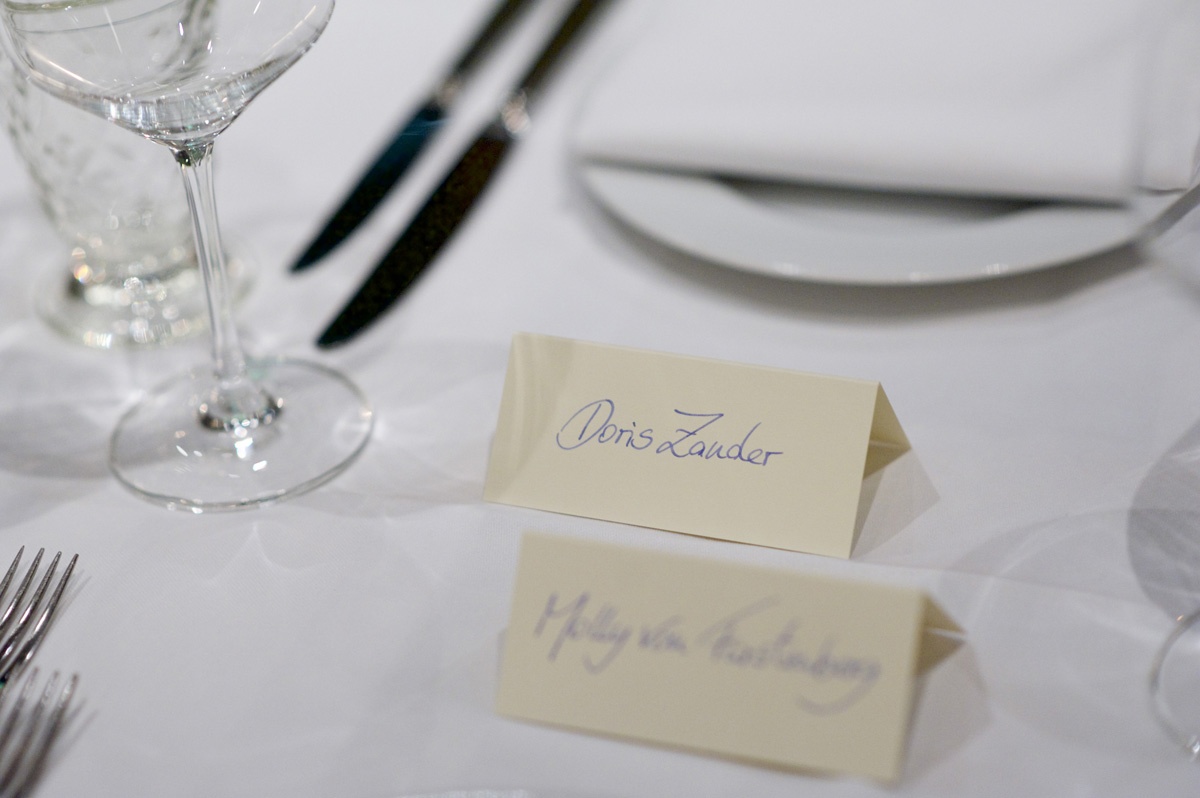 Doris Zander
Molly von Fürstenberg